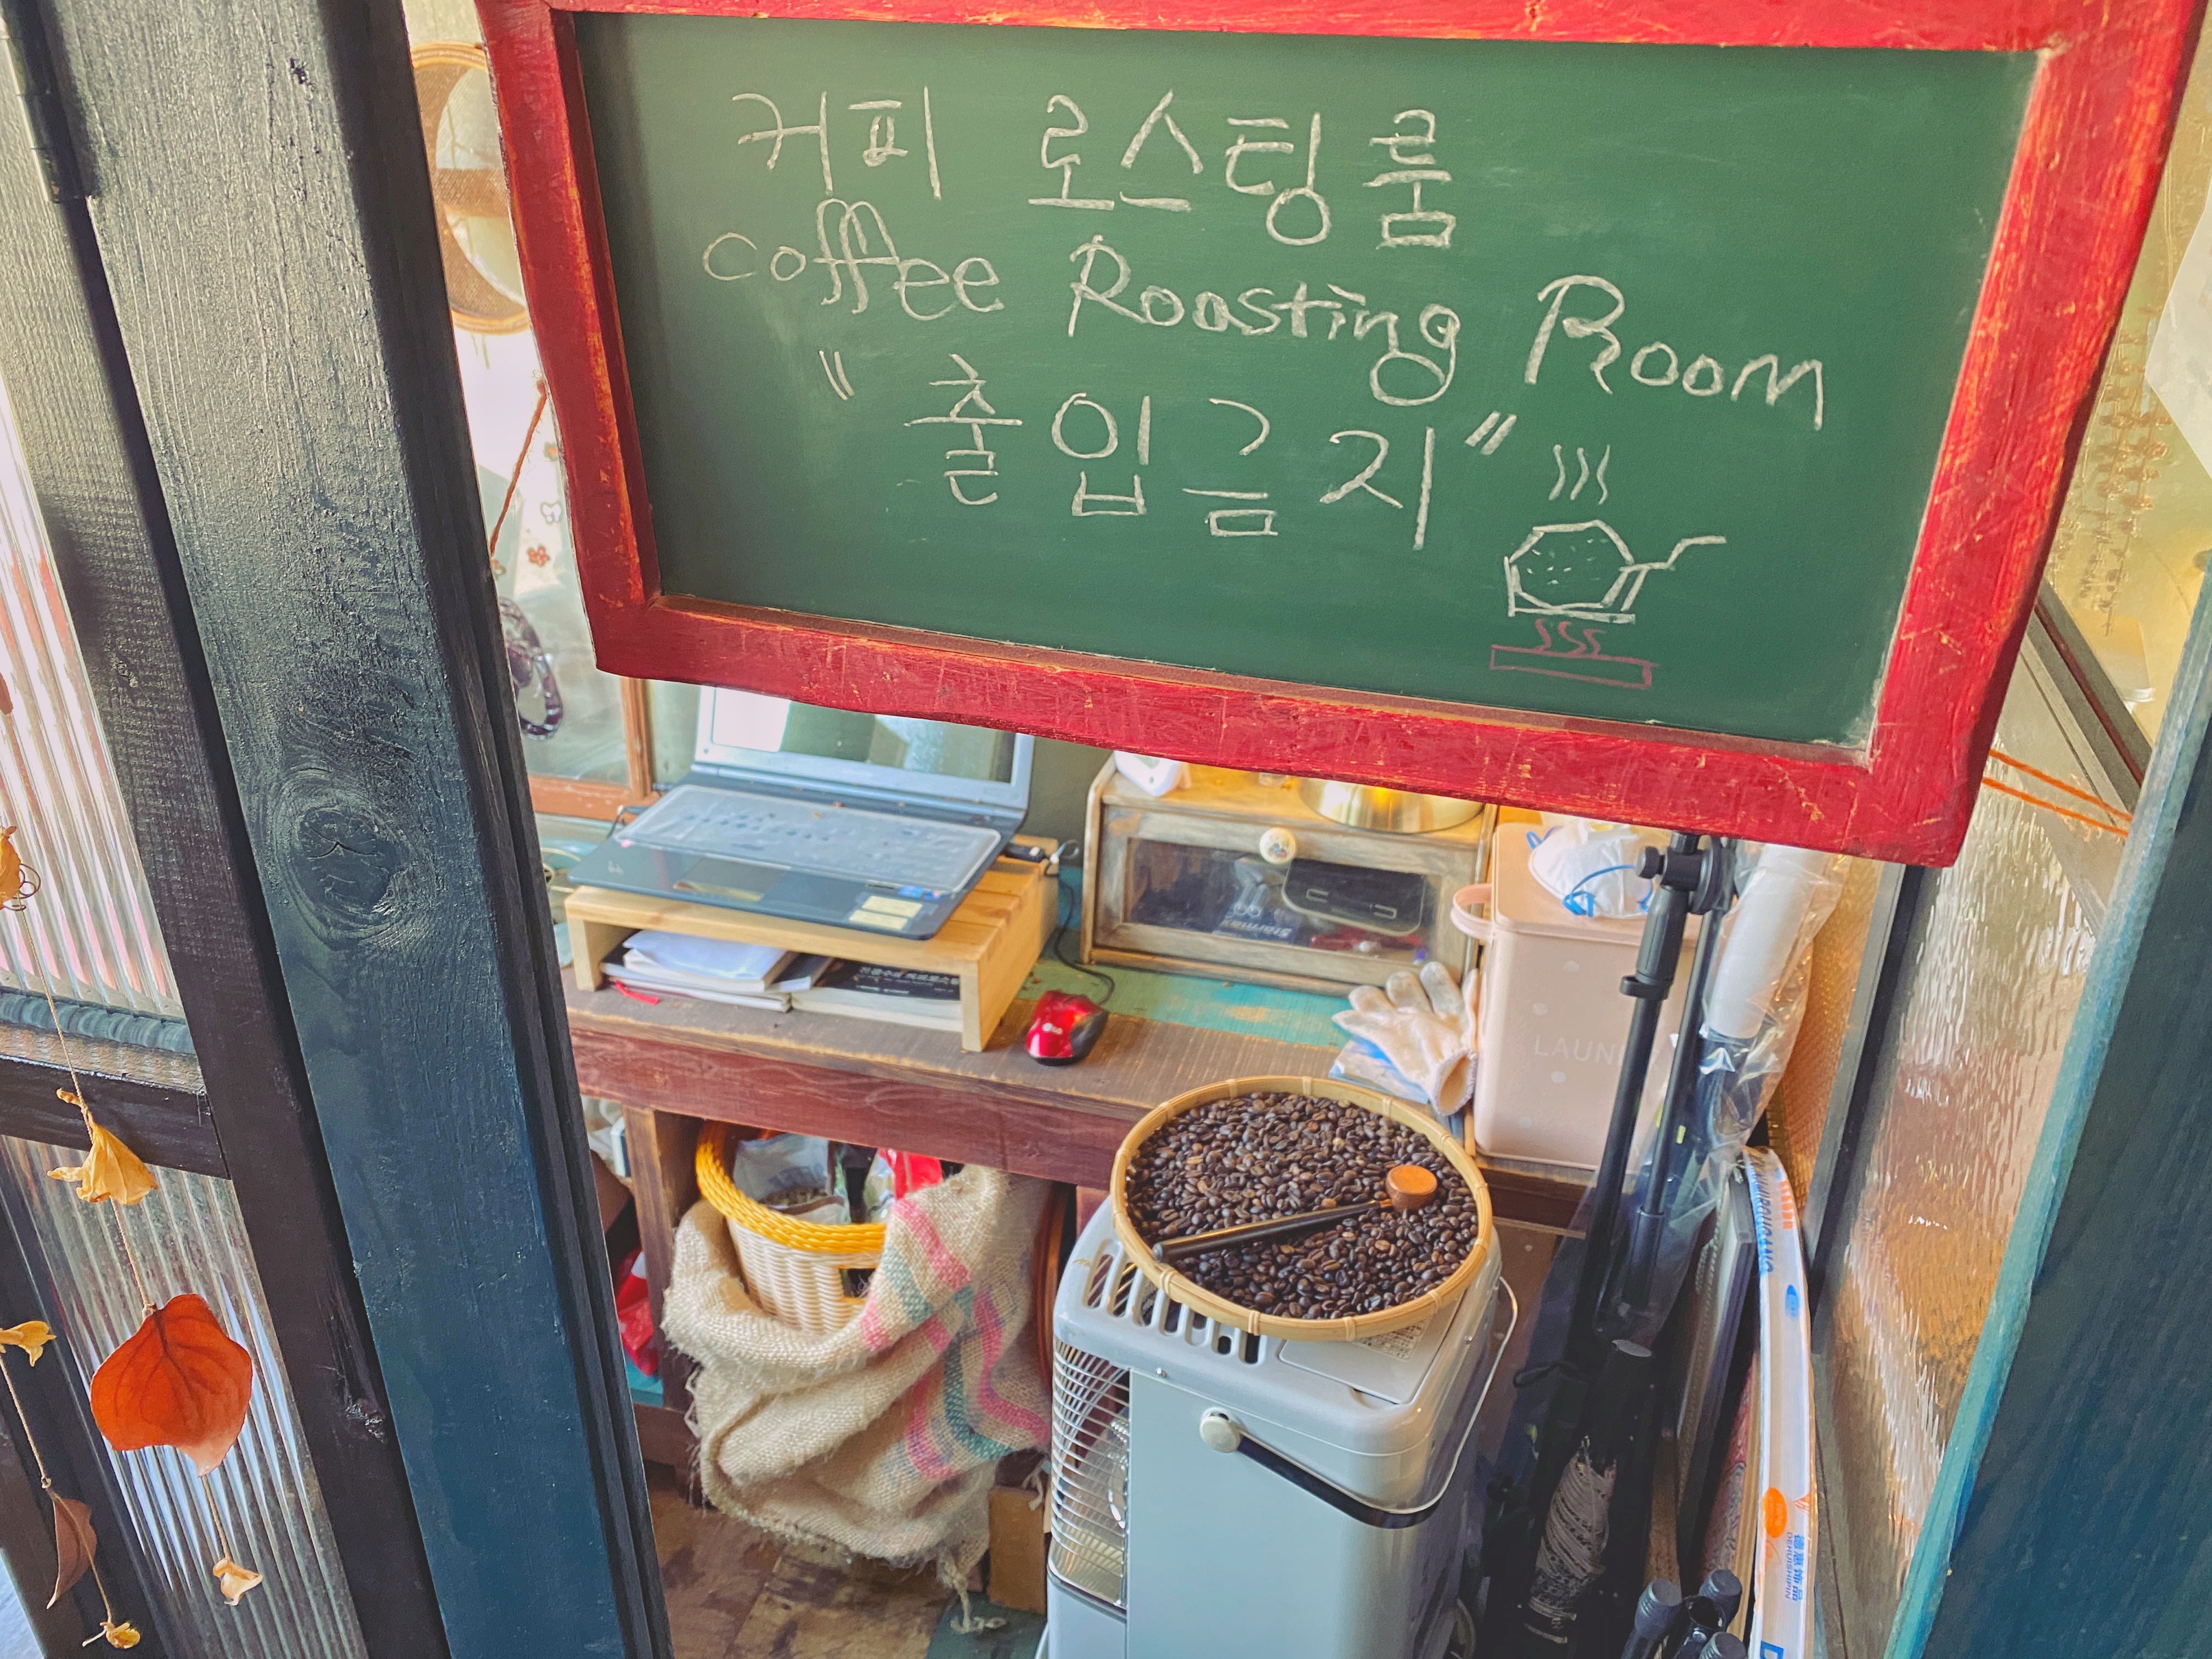 커피 로스팅룸
Coffee Roasting Room
"출입금지"
LG
LAUN